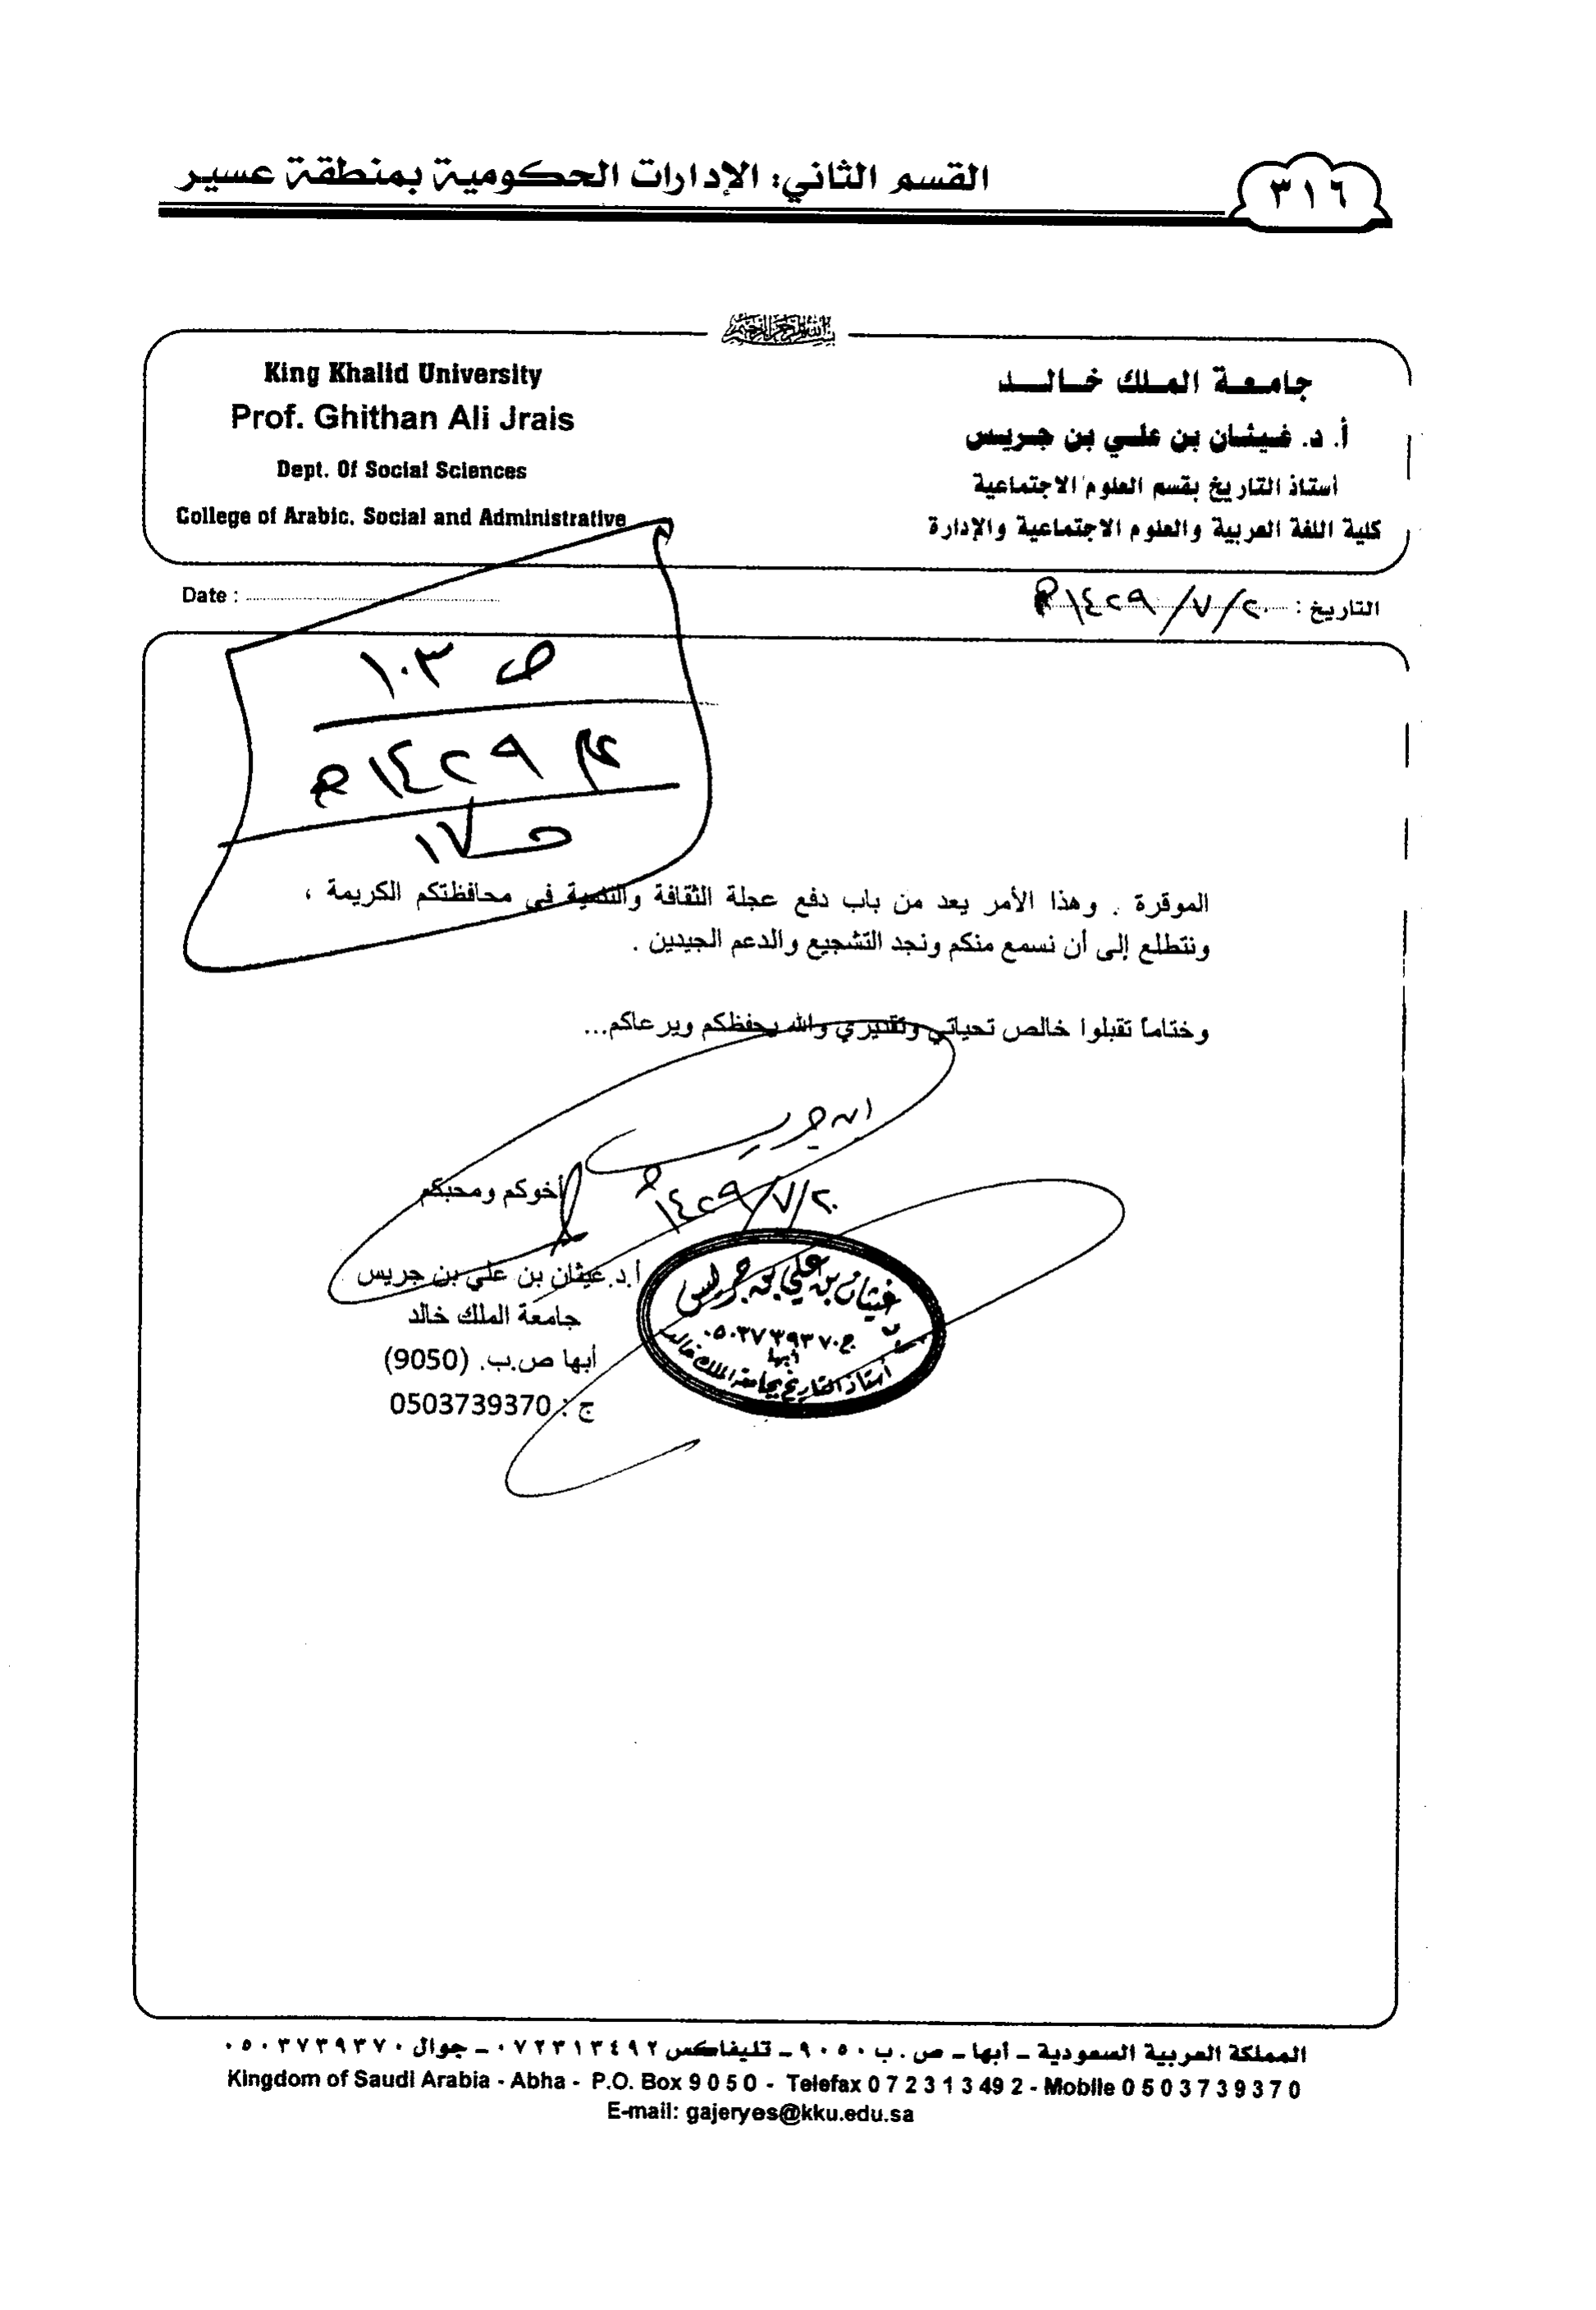 القسم الثاني: الإدارات الحكومية بمنطقة عسير
٣١٦
بسم الله الرحمن الرحيم
جامعة الملك خالد
أ. د. غيثان بن علي بن جريس
أستاذ التاريخ بقسم العلوم الاجتماعية
كلية اللغة العربية والعلوم الاجتماعية والإدارة
King Khalid University
Prof. Ghithan Ali Jrais
Dept. Of Social Sciences
College of Arabic. Social and Administrative
التاريخ : ٢٠/٧/١٤٢٩هـ
Date :
ص ١٠٣
١٤٢٩هـ
ح ١٧
الموقرة . وهذا الأمر يعد من باب دفع عجلة الثقافة والتنمية في محافظتكم الكريمة ،
ونتطلع إلى أن نسمع منكم ونجد التشجيع والدعم الجيدين .
وختاماً تقبلوا خالص تحياتي وتقديري والله يحفظكم ويرعاكم...
ابن جريس
٢٠/٧/١٤٢٩هـ
أخوكم ومحبكم
أ.د.غيثان بن علي بن جريس
جامعة الملك خالد
أبها ص.ب. (9050)
ج : 0503739370
غيثان بن علي بن جريس
ج ٠٥٠٣٧٣٩٣٧٠
أبها
أستاذ التاريخ بجامعة الملك خالد
المملكة العربية السعودية – أبها – ص . ب ٩٠٥٠ – تليفاكس ٠٧٢٣١٣٤٩٢ – جوال ٠٥٠٣٧٣٩٣٧٠
Kingdom of Saudi Arabia - Abha - P.O. Box 9 0 5 0 - Telefax 0 7 2 3 1 3 49 2 - Mobile 0 5 0 3 7 3 9 3 7 0
E-mail: gajeryes@kku.edu.sa